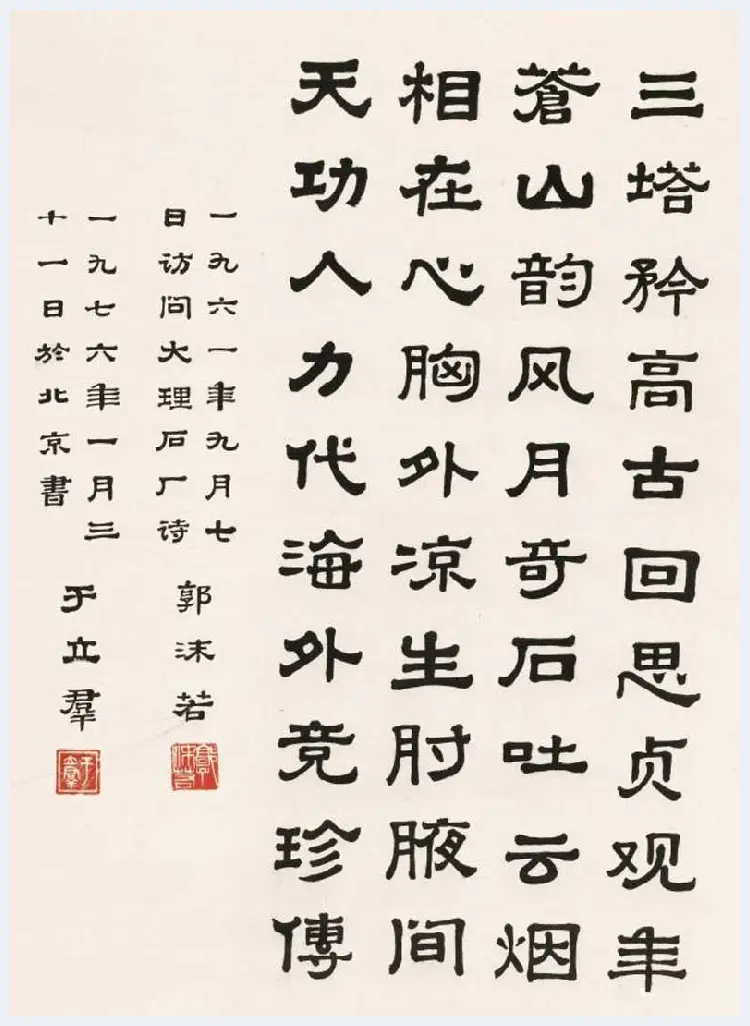 三塔矜高古回思贞观年
蒼山韵风月奇石吐云烟
相在心胸外凉生肘腋间
天功人力代海外竞珍傳
一九六一年九月七
日访问大理石厂诗
郭沫若
郭沫若
一九七六年一月三
十一日於北京書
于立羣
于立羣